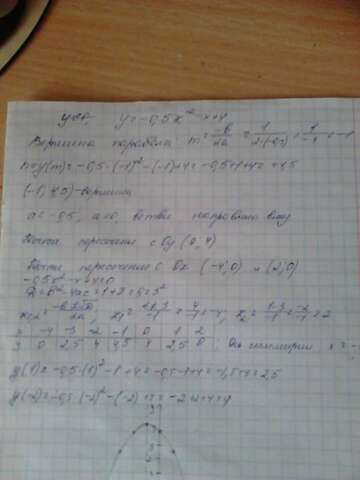 y = -0,5x² - x + 4
Вершина параболы m = -b/2a = 1/2·(-0,5) = 1/-1 = -1
n = y(m) = -0,5·(-1)² - (-1) + 4 = -0,5 + 1 + 4 = 4,5
(-1; 4,5) - вершина
a = -0,5, a<0, ветви направлены вниз
пересечения с Oy (0; 4)
пересечения с Ox (-4; 0) и (2; 0)
-0,5x² - x + 4 = 0
D = b² - 4ac = 1 + 8 = 9 = 3²
x₁,₂ = -b±√D/2a; x₁ = 1+3/-1 = 4/-1 = -4; x₂ = 1-3/-1 = -2/-1 = 2
x -4 -3 -2 -1 0 1 2
y 0 2,5 4 4,5 4 2,5 0 ; Ось симметрии x = -
y(1) = -0,5·(1)² - 1 + 4 = -0,5 - 1 + 4 = -1,5 + 4 = 2,5
y(-2) = -0,5·(-2)² - (-2) + 4 = -2 + 2 + 4 = 4